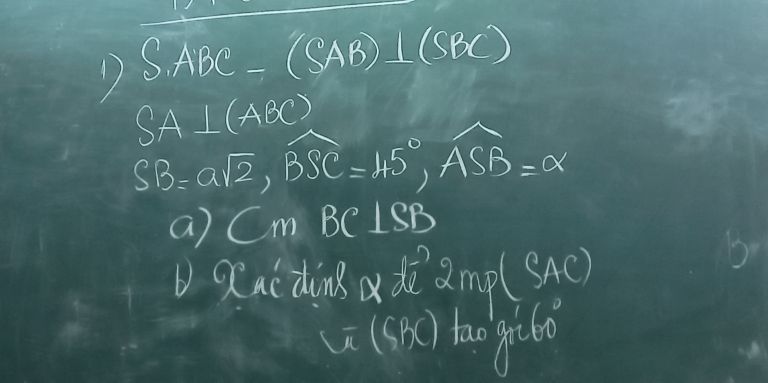 1) S.ABC - (SAB) ⊥ (SBC)
SA ⊥ (ABC)
SB = a√2, BSC = 45°, ASB = α
a) Cm BC ⊥ SB
b) Xác định α để 2mp (SAC)
và (SBC) tạo góc 60°